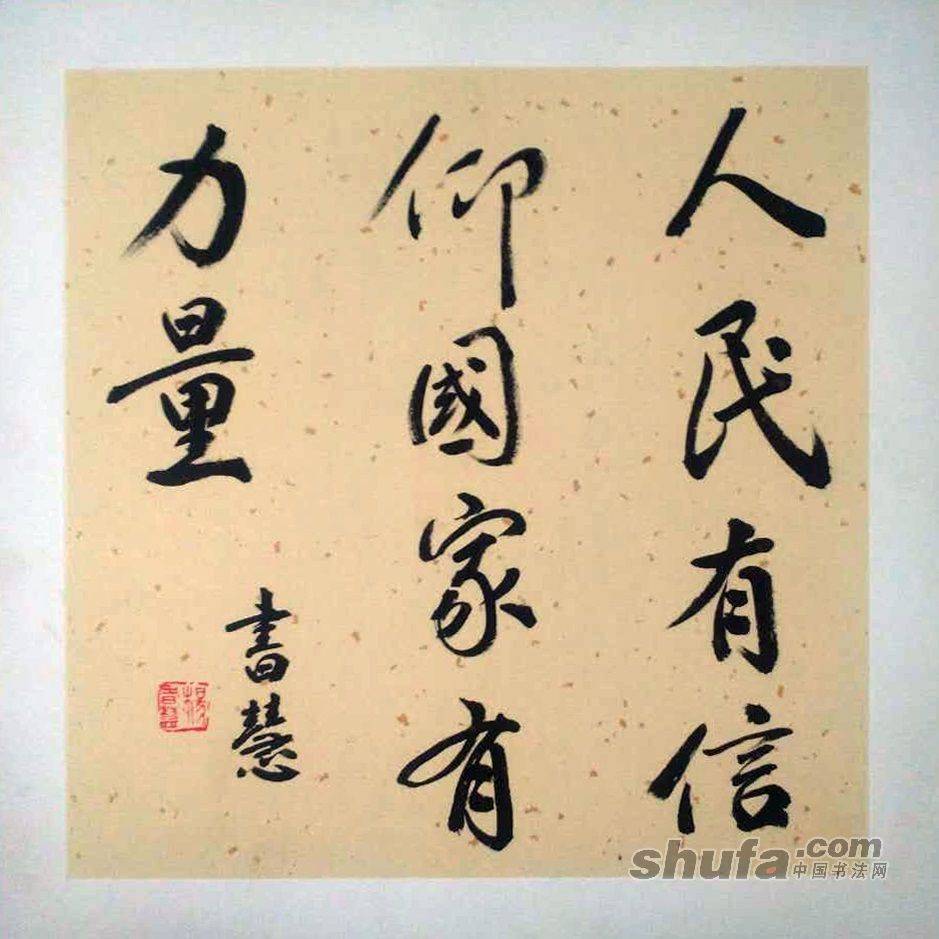 人民有信
仰國家有
力量
書慧
shufa.com
中国书法网